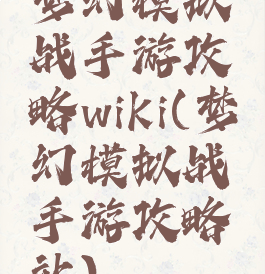 梦幻模拟
战手游攻
略wiki(梦
幻模拟战
手游攻略
站)